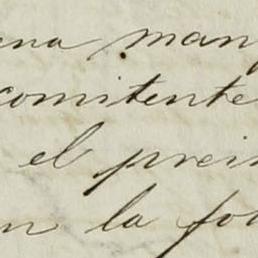 ena man
comitente
el prei
n la fo